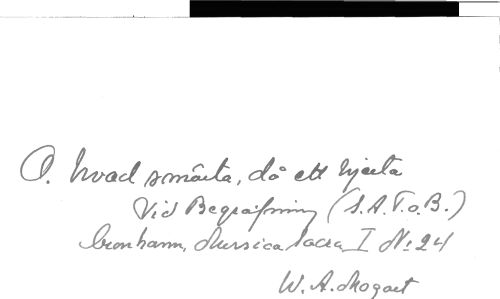 O. hvad smärta, då ett hjerta
Vid Begrafning (S.A.T.o.B.)
Cronhamn, Mussica Sacra I No 24
W. A. Mozart